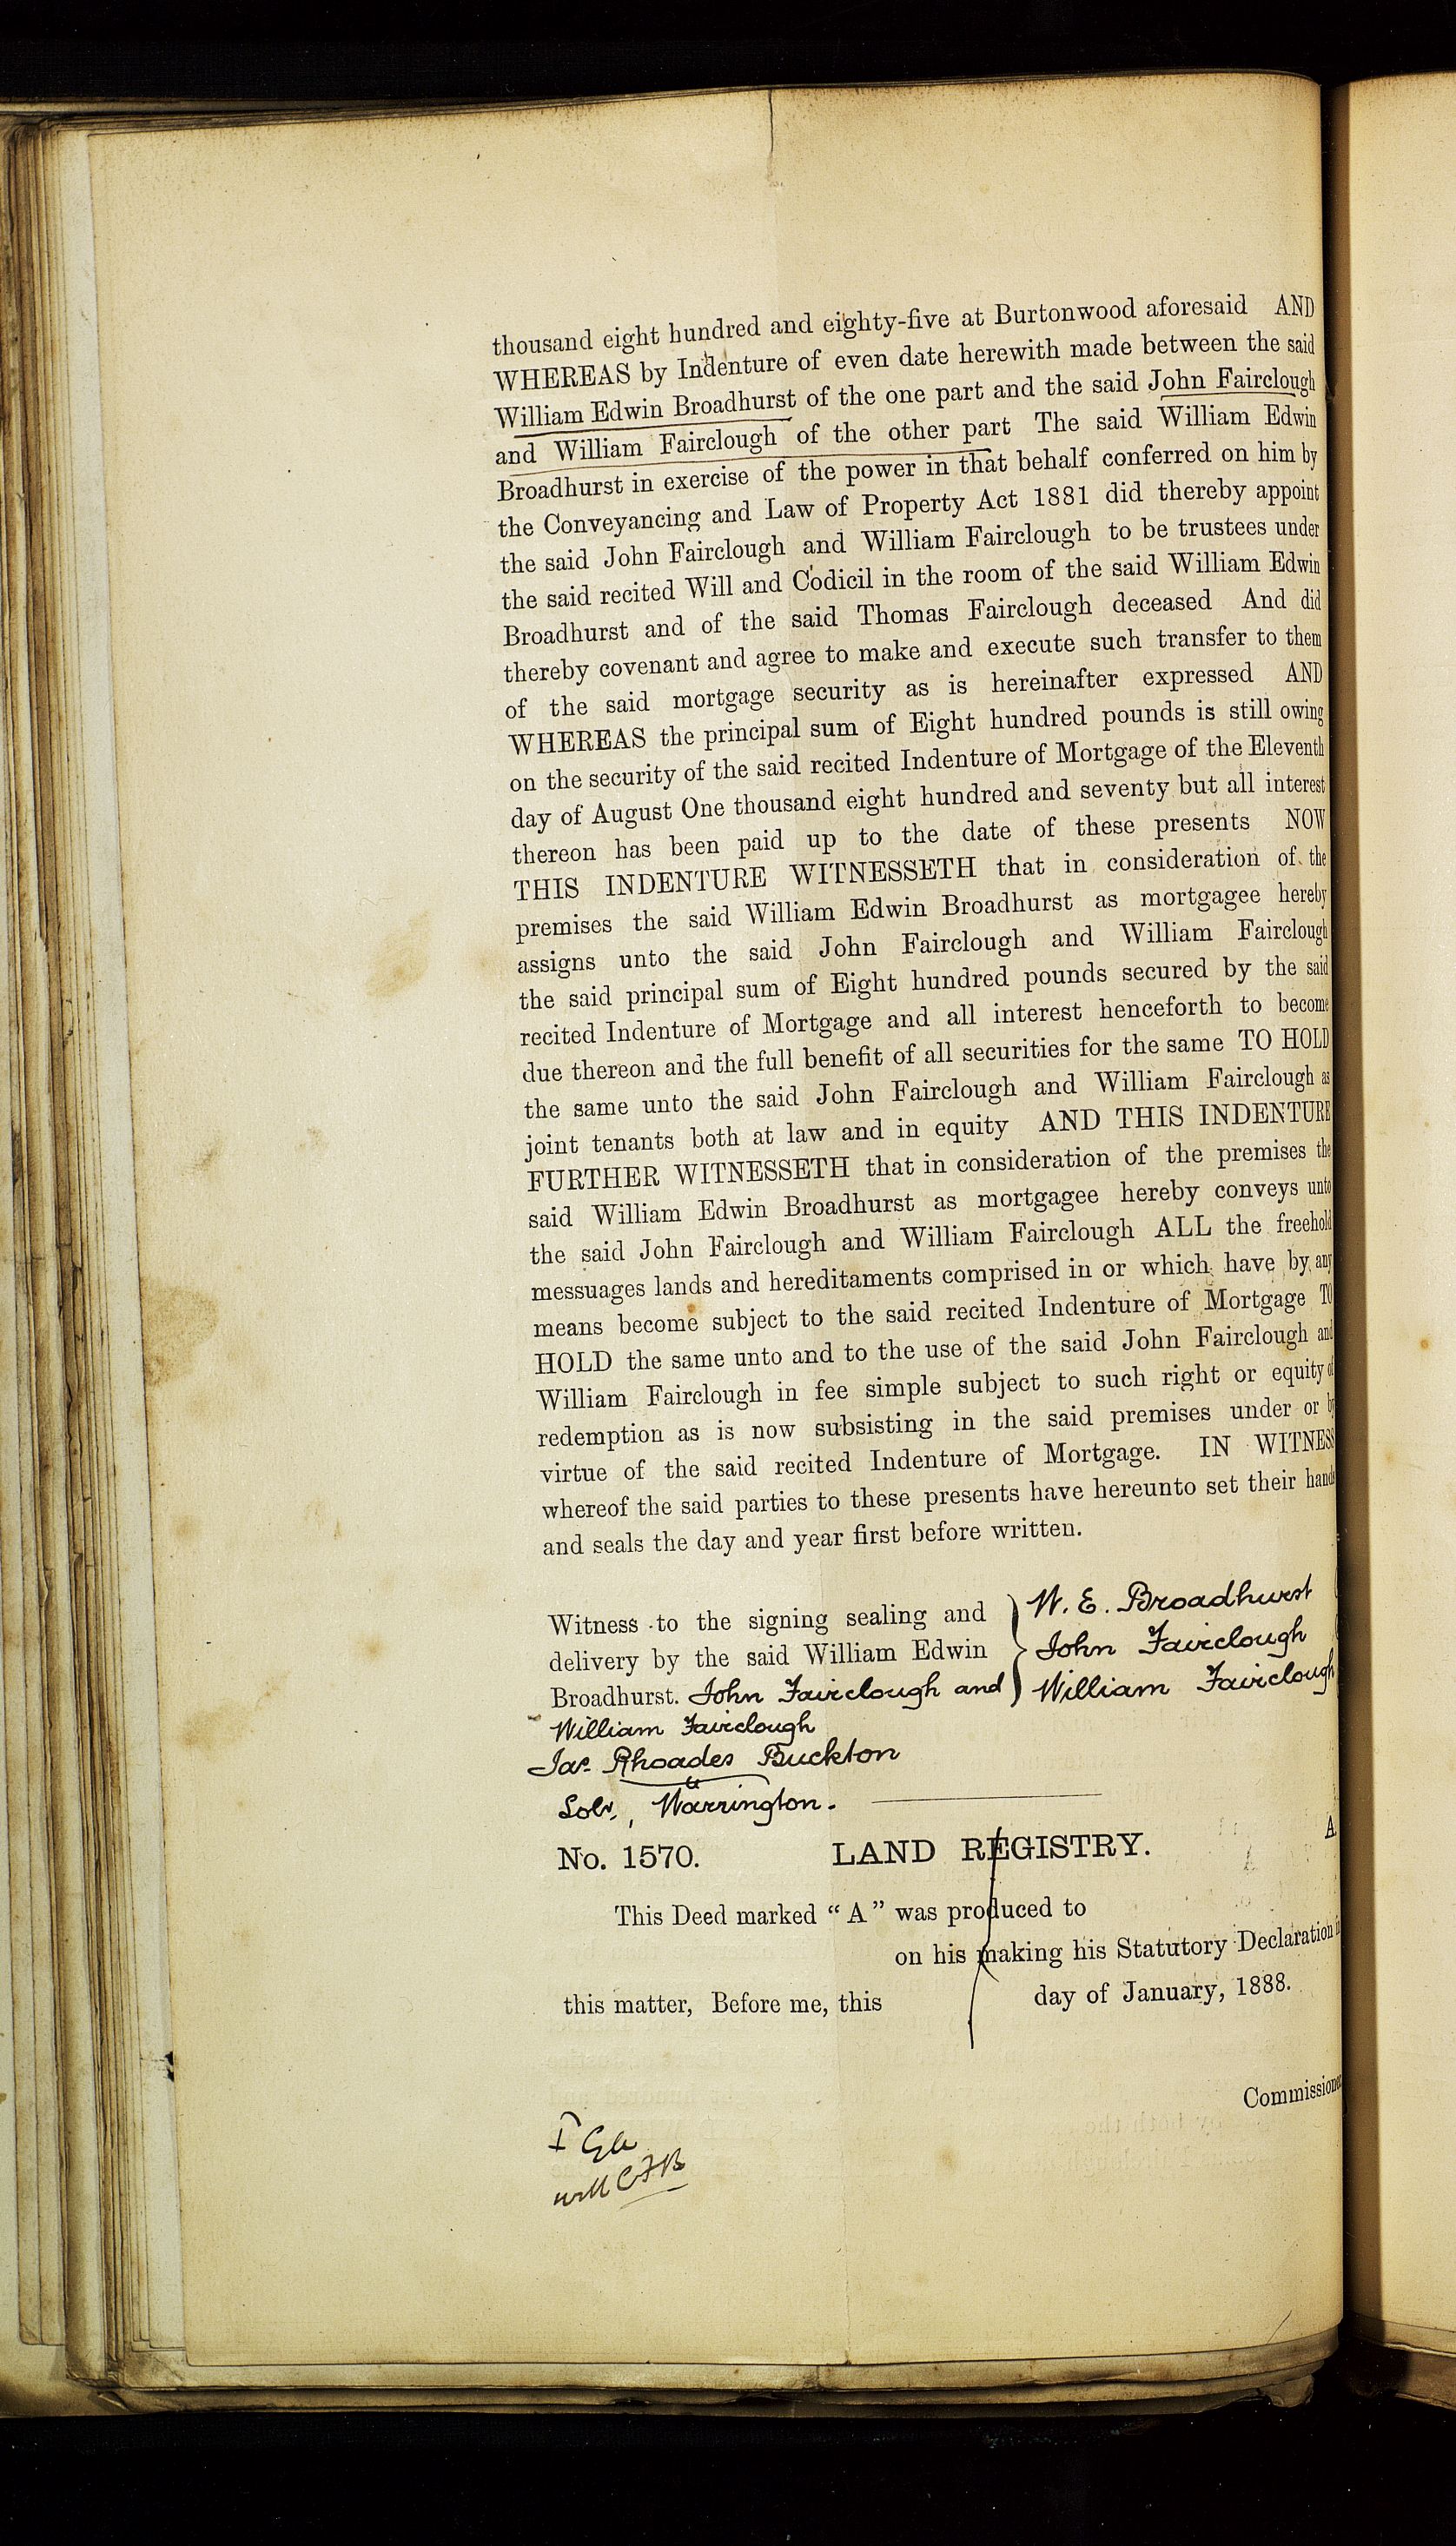 thousand eight hundred and eighty-five at Burtonwood aforesaid AND
WHEREAS by Indenture of even date herewith made between the said
William Edwin Broadhurst of the one part and the said John Fairclough
and William Fairclough of the other part The said William Edwin
Broadhurst in exercise of the power in that behalf conferred on him by
the Conveyancing and Law of Property Act 1881 did thereby appoint
the said John Fairclough and William Fairclough to be trustees under
the said recited Will and Codicil in the room of the said William Edwin
Broadhurst and of the said Thomas Fairclough deceased And did
thereby covenant and agree to make and execute such transfer to them
of the said mortgage security as is hereinafter expressed AND
WHEREAS the principal sum of Eight hundred pounds is still owing
on the security of the said recited Indenture of Mortgage of the Eleventh
day of August One thousand eight hundred and seventy but all interest
thereon has been paid up to the date of these presents NOW
THIS INDENTURE WITNESSETH that in consideration of the
premises the said William Edwin Broadhurst as mortgagee hereby
assigns unto the said John Fairclough and William Fairclough
the said principal sum of Eight hundred pounds secured by the said
recited Indenture of Mortgage and all interest henceforth to become
due thereon and the full benefit of all securities for the same TO HOLD
the same unto the said John Fairclough and William Fairclough as
joint tenants both at law and in equity AND THIS INDENTURE
FURTHER WITNESSETH that in consideration of the premises the
said William Edwin Broadhurst as mortgagee hereby conveys unto
the said John Fairclough and William Fairclough ALL the freehold
messuages lands and hereditaments comprised in or which have by any
means become subject to the said recited Indenture of Mortgage TO
HOLD the same unto and to the use of the said John Fairclough and
William Fairclough in fee simple subject to such right or equity of
redemption as is now subsisting in the said premises under or by
virtue of the said recited Indenture of Mortgage. IN WITNESS
whereof the said parties to these presents have hereunto set their hands
and seals the day and year first before written.
Witness to the signing sealing and
delivery by the said William Edwin
Broadhurst. John Fairclough and
William Fairclough
Jas. Rhoades Buckton
Solr., Warrington.
W. E. Broadhurst
John Fairclough
William Fairclough
No. 1570. LAND REGISTRY. A
This Deed marked “A” was produced to
on his making his Statutory Declaration in
this matter, Before me, this day of January, 1888.
Commissioner